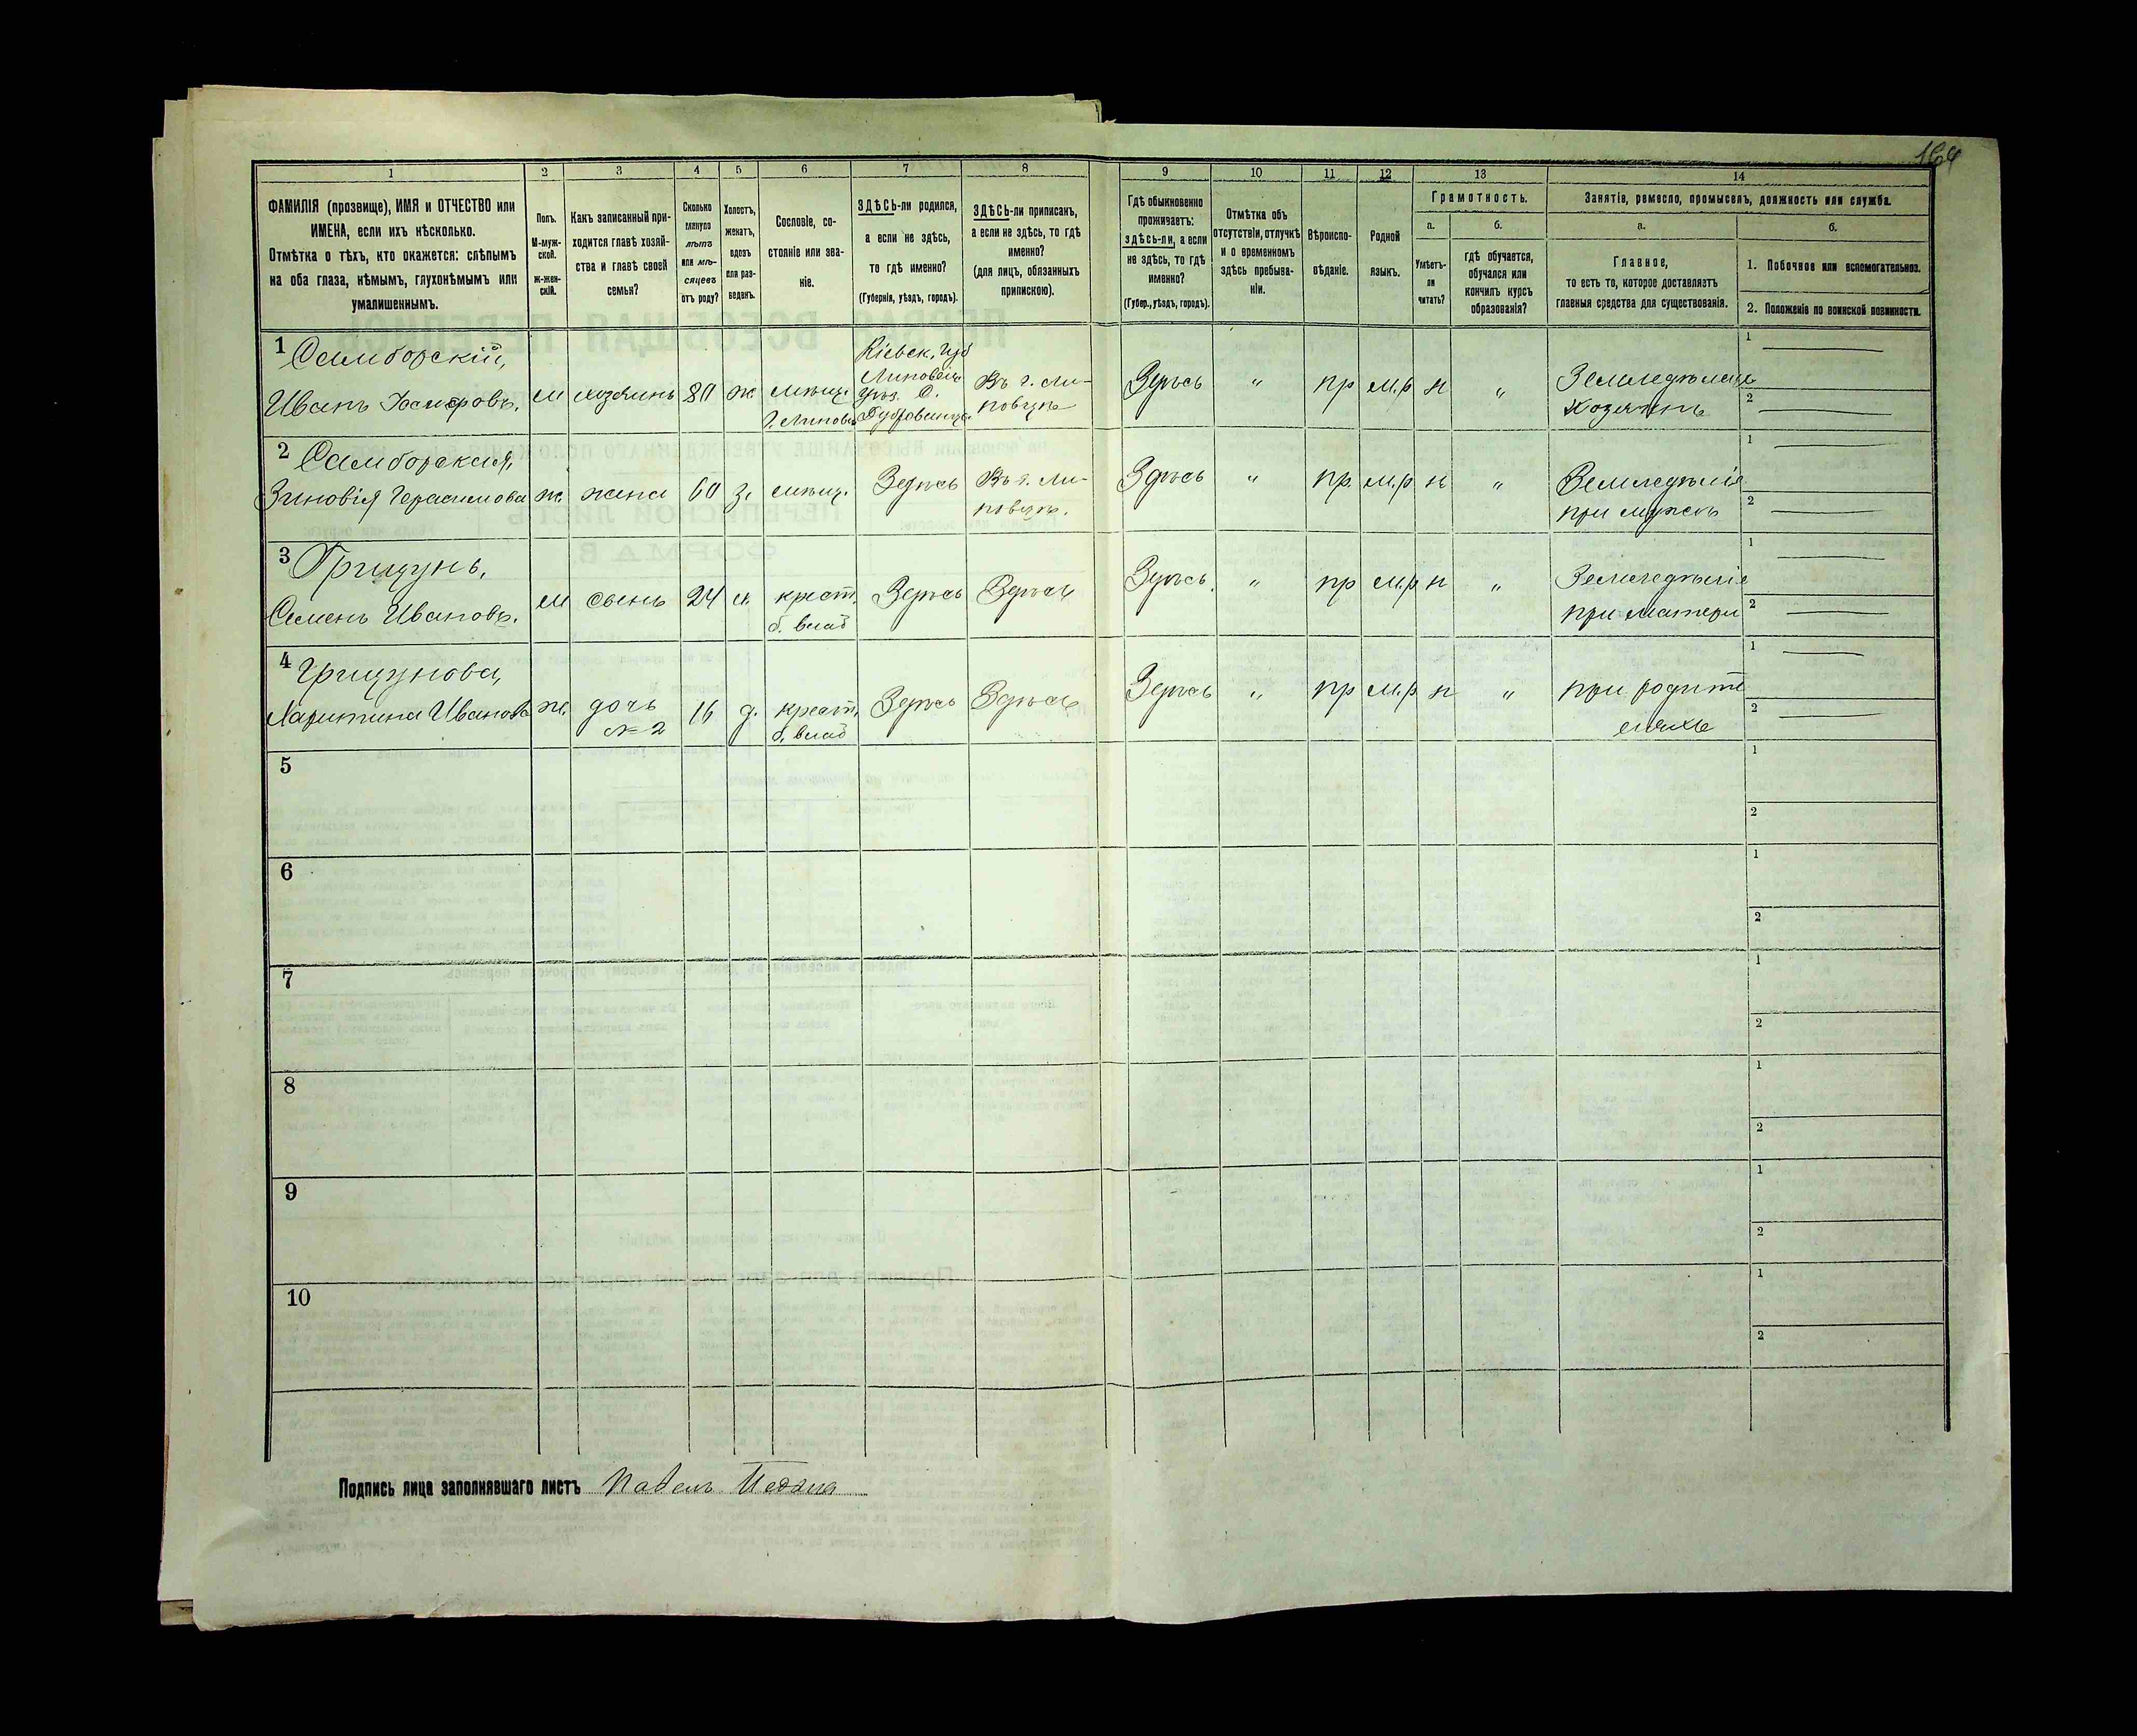 164
1
2
3
4
5
6
7
8
9
10
11
12
13
14
ФАМИЛІЯ (прозвище), ИМЯ и ОТЧЕСТВО или
ИМЕНА, если ихъ нѣсколько.
Отмѣтка о тѣхъ, кто окажется: слѣпымъ
на оба глаза, нѣмымъ, глухонѣмымъ или
умалишеннымъ.
Полъ.
М-муж-
ской.
ж-жен-
скій.
Какъ записанный при-
ходится главѣ хозяй-
ства и главѣ своей
семьи?
Сколько
минуло
лѣтъ
или мѣ-
сяцевъ
отъ роду?
Холостъ,
женатъ,
вдовъ
или раз-
веденъ.
Сословіе, со-
стояніе или зва-
ніе.
ЗДѢСЬ-ли родился,
а если не здѣсь,
то гдѣ именно?
(Губернія, уѣздъ, городъ).
ЗДѢСЬ-ли приписанъ,
а если не здѣсь, то гдѣ
именно?
(для лицъ, обязанныхъ
припискою).
Гдѣ обыкновенно
проживаетъ:
здѣсь-ли, а если
не здѣсь, то гдѣ
именно?
(Губер., уѣздъ, городъ).
Отмѣтка объ
отсутствіи, отлучкѣ
и о временномъ
здѣсь пребыва-
ніи.
Вѣроиспо-
вѣданіе.
Родной
языкъ.
Грамотность.
а.
Умѣетъ-
ли
читать?
б.
гдѣ обучается,
обучался или
кончилъ курсъ
образованія?
Занятіе, ремесло, промыселъ, должность или служба.
а.
Главное,
то есть то, которое доставляетъ
главныя средства для существованія.
б.
1. Побочное или вспомогательное.
2. Положеніе по воинской повинности.
1 Самборскій,
Иванъ
м
хозяинъ
80
ж.
мѣщ.
г. Липов
Кіевск. губ
Липовец.
уѣз. С.
Въ г. Ли-
повцѣ
Здѣсь
"
пр
м.р
н
"
Земледѣлецъ
Хозяинъ
1
2
2 Самборская,
Зиновія Герасимова
ж.
жена
60
з.
мѣщ.
Здѣсь
Въ г. Ли-
повцѣ.
Здѣсь
"
пр.
м.р
н
"
Земледѣліе
при мужѣ
1
2
3 Грицунь,
Семенъ Ивановъ.
м
сынъ
24
х.
крест.
б. влад
Здѣсь
Здѣсь
Здѣсь.
"
пр
м.р
н
"
Земледѣліе
при матери
1
2
4 Грицунова,
Харитина Иванова
ж.
дочь
№ 2
16
д.
крест.
б. влад
Здѣсь
Здѣсь
Здѣсь
"
пр
м.р
н
"
при родите
ляхъ
1
2
5
1
2
6
1
2
7
1
2
8
1
2
9
1
2
10
1
2
Подпись лица заполнявшаго листъ Павелъ